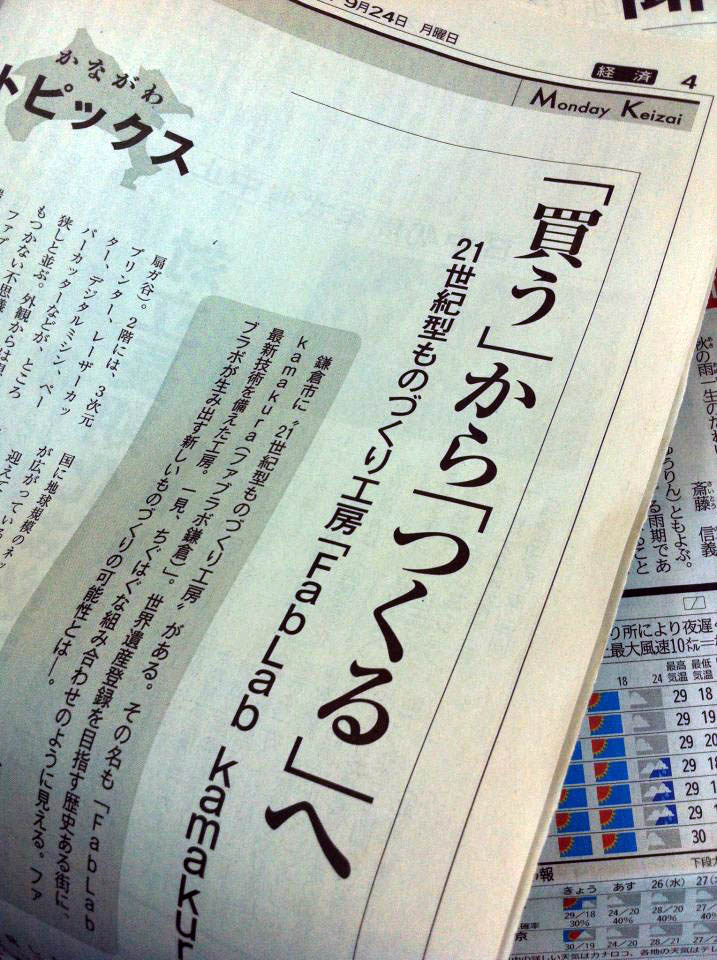 9月24日 月曜日
経済 4
Monday Keizai
かながわ
トピックス
「買う」から「つくる」へ
21世紀型ものづくり工房「FabLab kamakur
鎌倉市に“21世紀型ものづくり工房”がある。その名も「FabLab
kamakura(ファブラボ鎌倉)」。世界遺産登録を目指す歴史ある街に、
最新技術を備えた工房。一見、ちぐはぐな組み合わせのように見える。ファ
ブラボが生み出す新しいものづくりの可能性とは―。
扇ガ谷)。2階には、3次元
プリンター、レーザーカッ
ター、デジタルミシン、ペー
パーカッターなどが、ところ
狭しと並ぶ。外観からは
もつかない不思議
ファブ
国に地球規模のネッ
が広がっている
迎えて
秋の雨
斎藤 信義
うりん)ともよぶ。
る雨期であ
こと
り所により夜遅
最大風速10メートル
18 24 最高気温 最低気温
29 18
29 19
29 20
29 18
29 1
29 1
30
下段
報
きょう あす 26(水) 27(
29/18 24/20 28/20 27/
確率 30% 40% 40% 40%
京 30/19 24/20 28/21 27/
の詳しい天気はカナロコ、各地の天気はテレ